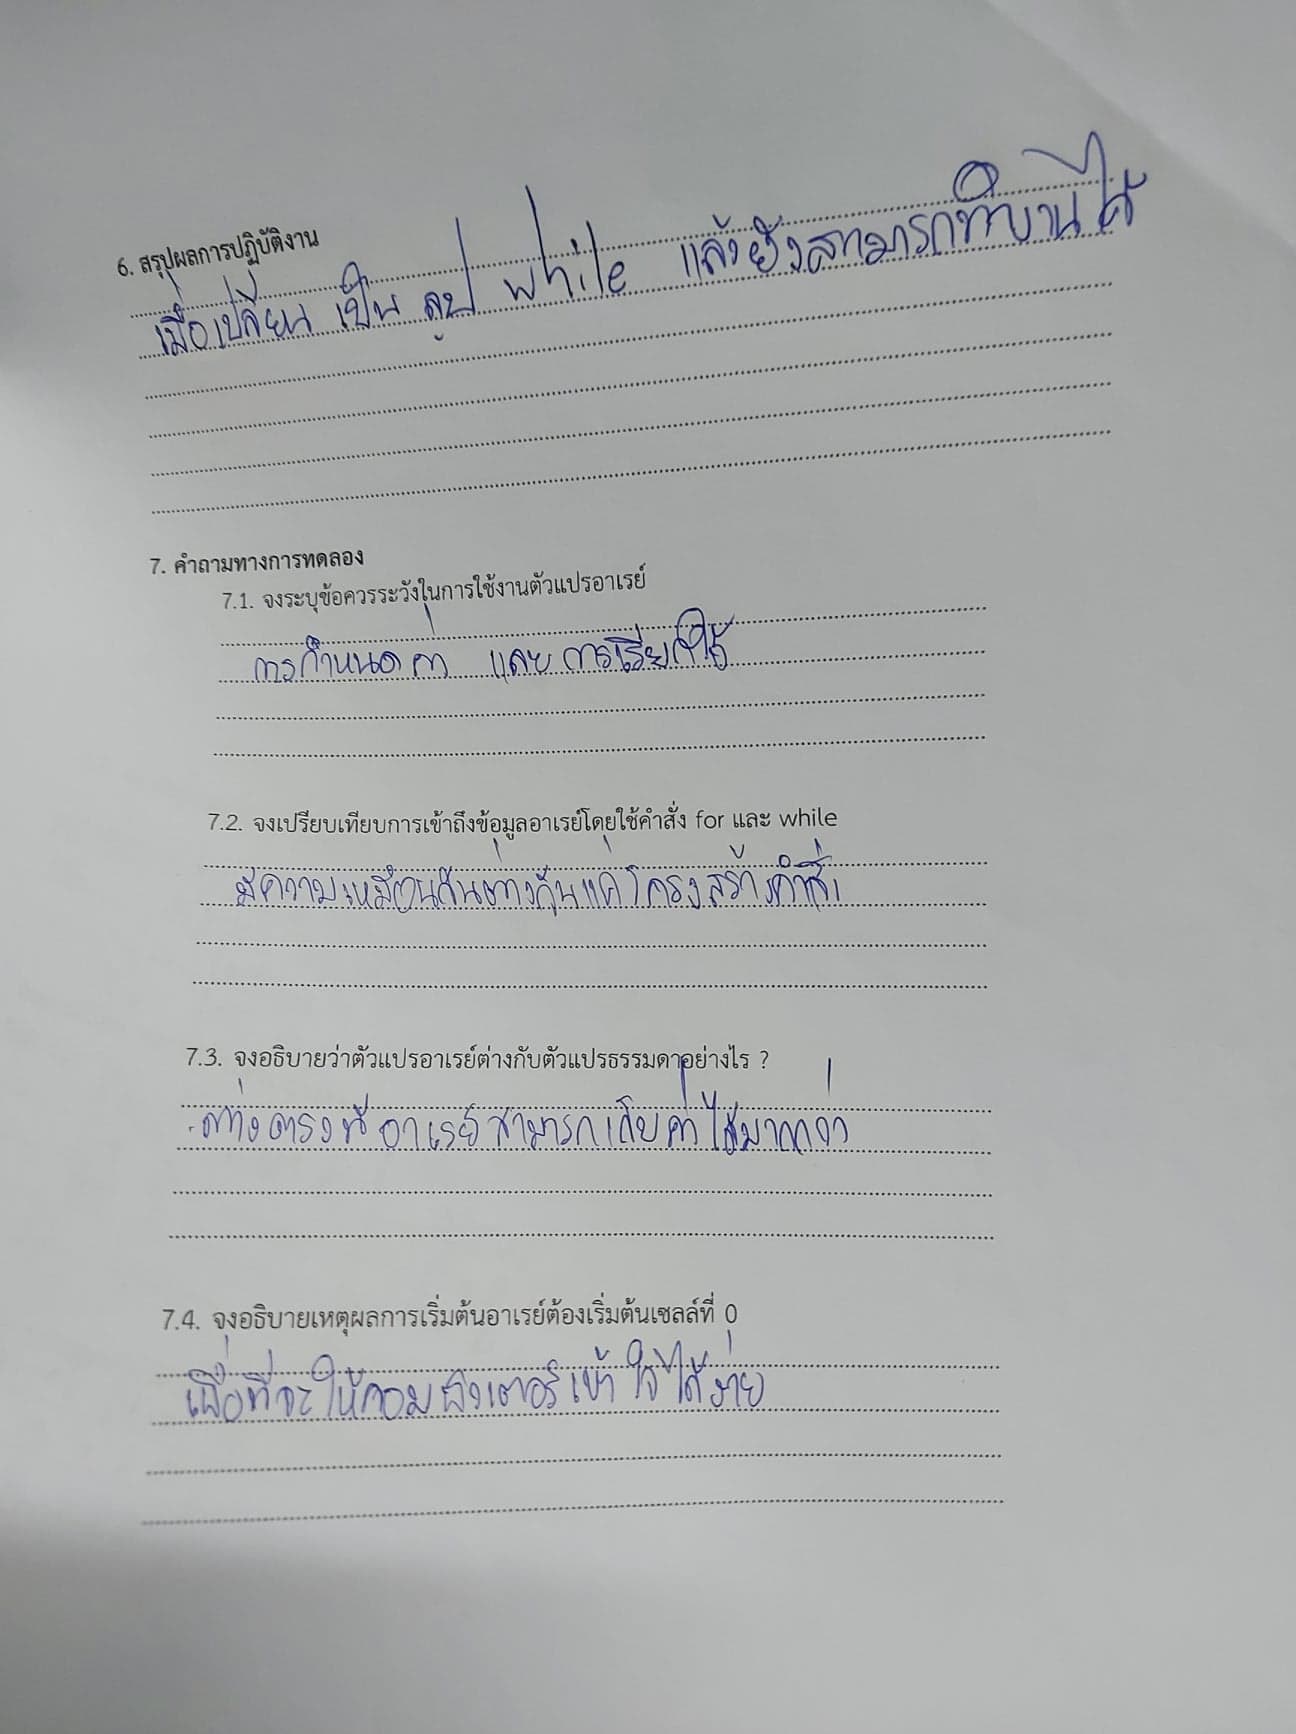 6. สรุปผลการปฏิบัติงาน
เมื่อเปลี่ยน เป็น ลูป while แล้วยังสามารถทำงานได้
7. คำถามทางการทดลอง
7.1. จงระบุข้อควรระวังในการใช้งานตัวแปรอาเรย์
การกำหนด ค่า และ การเรียกใช้
7.2. จงเปรียบเทียบการเข้าถึงข้อมูลอาเรย์โดยใช้คำสั่ง for และ while
มีความเหมือนกันต่างกันแค่โครงสร้างคำสั่ง
7.3. จงอธิบายว่าตัวแปรอาเรย์ต่างกับตัวแปรธรรมดาอย่างไร ?
ต่างตรงที่ อาเรย์สามารถเก็บค่าได้มากกว่า
7.4. จงอธิบายเหตุผลการเริ่มต้นอาเรย์ต้องเริ่มต้นเซลล์ที่ 0
เพื่อที่จะให้คอมพิวเตอร์เข้าใจได้ง่าย